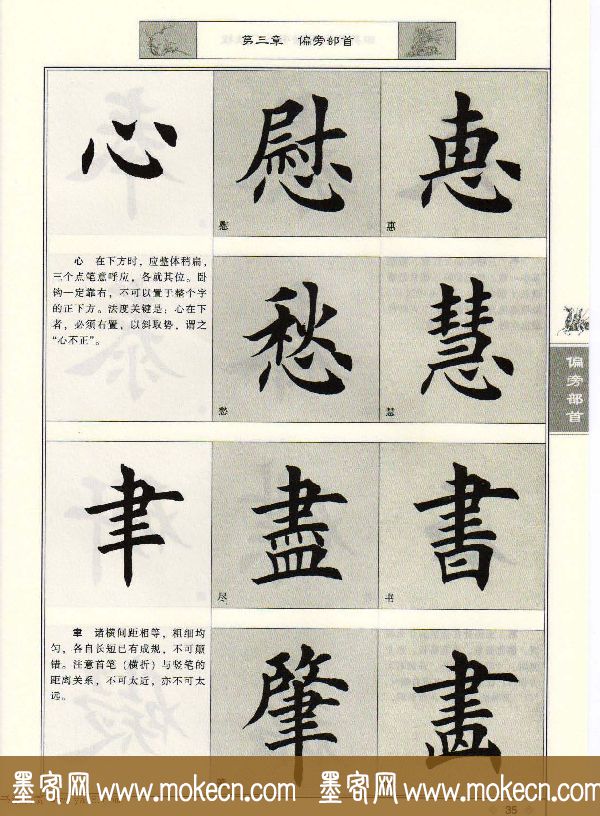 第三章 偏旁部首
心
慰
惠
慰
惠
心 在下方时,应整体稍扁,
三个点笔意呼应,各就其位。卧
钩一定靠右,不可以置于整个字
的正下方。法度关键是:心在下
者,必须右置,以斜取势,谓之
“心不正”。
愁
慧
愁
慧
偏旁部首
聿
盡
書
尽
书
聿 诸横间距相等,粗细均
匀,各自长短已有成规,不可颠
错。注意首笔(横折)与竖笔的
距离关系,不可太近,亦不可太
远。
肇
畫
墨客网 www.mokecn.com 墨客网 www.mokecn.com
35